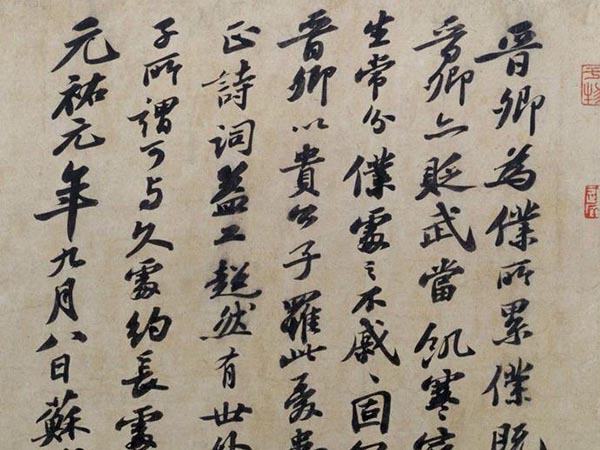 晉卿為僕所累僕既
晉卿亦貶武當飢寒
生常分僕處之不戚〻固
晉卿以貴公子罹此憂
正詩詞益工超然有世外
子所謂可与久處約長處
元祐元年九月八日蘇